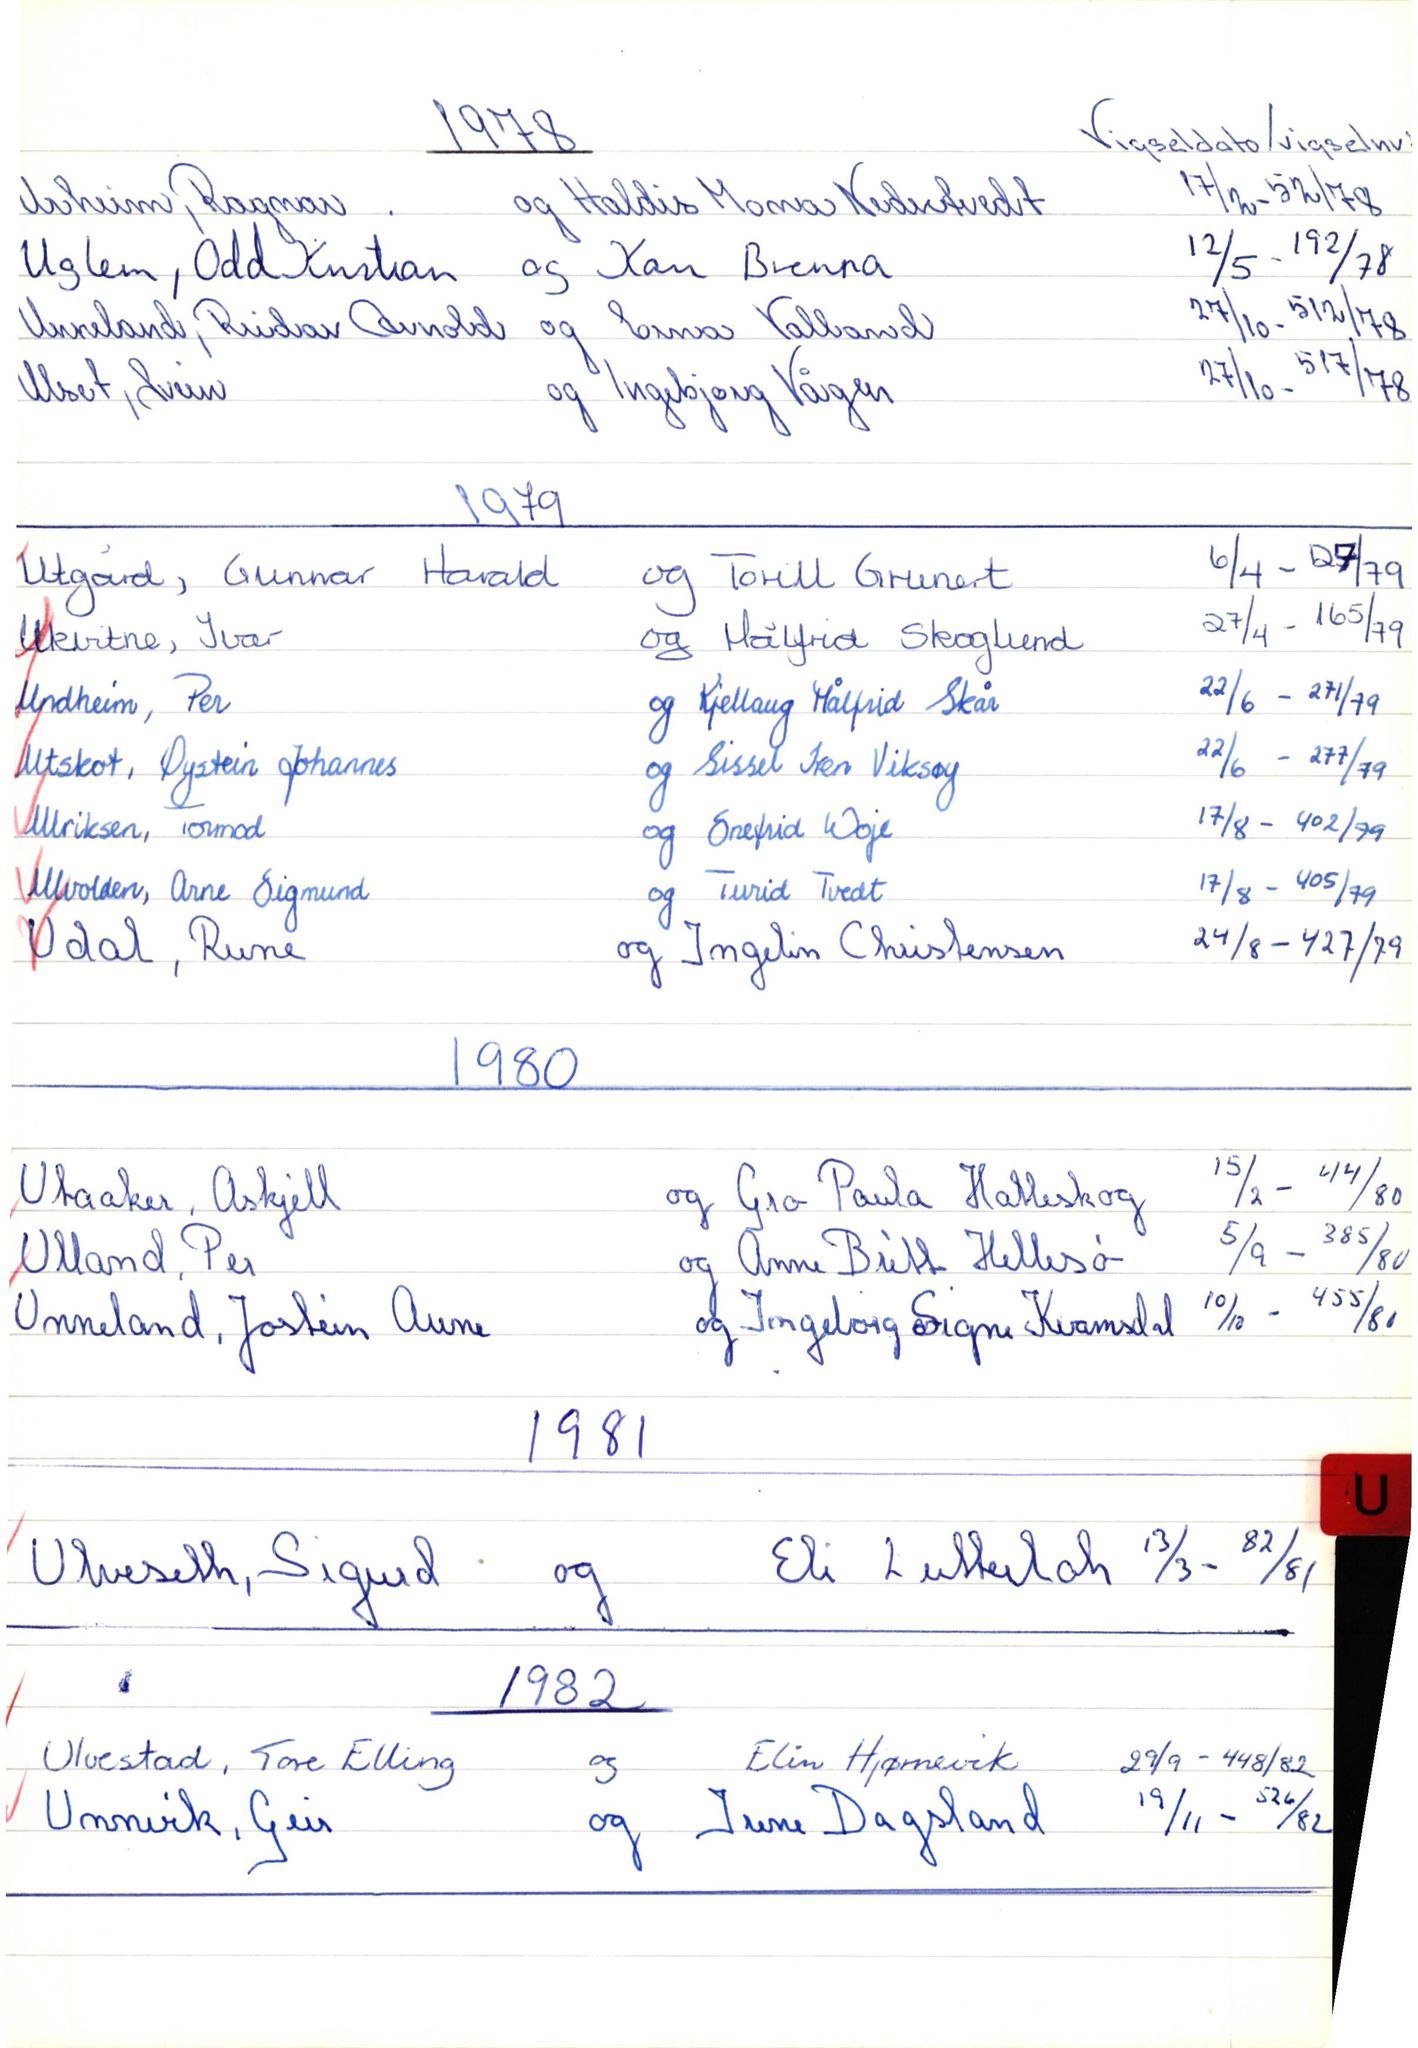 1978 Vigseldato/vigselnr:
Urheim, Ragnar og Haldis Mona Nedretvedt 17/2-52/78
Uglem, Odd Kristian og Kari Brenna 12/5-192/78
Unneland, Reidar Arnold og Erna Valland 27/10-512/78
Ulset, Svein og Ingebjørg Vågen 27/10-517/78
1979
Utgård, Gunnar Harald og Torill Grunert 6/4-127/79
Ukvitne, Ivar og Målfrid Skoglund 27/4-165/79
Undheim, Per og Kjellaug Målfrid Skår 22/6-271/79
Utskot, Øystein Johannes og Sissel Iren Viksøy 22/6-277/79
Ulriksen, Tormod og Snefrid Woje 17/8-402/79
Ulvolden, Arne Sigmund og Turid Tvedt 17/8-405/79
Udal, Rune og Ingelin Christensen 24/8-427/79
1980
Utaaker, Askjell og Gro Paula Hatleskog 15/2-44/80
Ulland, Per og Anne Britt Hellesø 5/9-385/80
Unneland, Jostein Aune og Ingeborg Signe Kvamsdal 10/10-455/80
1981
U
Ulveseth, Sigurd og Eli 13/3-82/81
1982
Ulvestad, Tore Elling og Elin Hjørnevik 29/9-448/82
Unnvik, Geir og Irene Dagsland 19/11-526/82